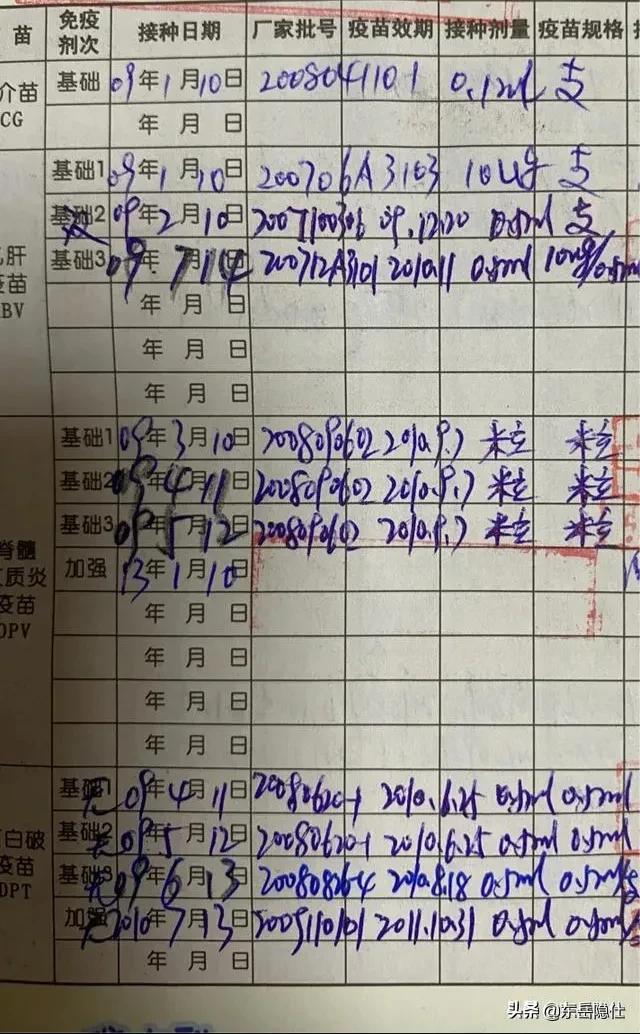 苗 免疫剂次 接种日期 厂家批号 疫苗效期 接种剂量 疫苗规格
介苗 CG 基础 09年1月10日 2008041101 0.1ml 支
年 月 日
基础1 09年1月10日 200706A3103 10ug 支
基础2 09年2月10日 2007100306 09.12.20 0.5ml 支
肝 疫苗 BV 基础3 09年7月14日 200712A3101 2010.11 0.5ml 10ug/0.5ml
年 月 日
年 月 日
年 月 日
基础1 09年3月10日 2008090602 2010.9.7 粒 粒
基础2 09年4月11日 2008090602 2010.9.7 粒 粒
基础3 09年5月12日 2008090602 2010.9.7 粒 粒
脊髓 质炎 疫苗 OPV 加强 13年1月10日
年 月 日
年 月 日
年 月 日
年 月 日
基础1 无 09年4月11日 20080620-1 2010.6.25 0.5ml 0.5ml
白破 疫苗 DPT 基础2 无 09年5月12日 20080620-1 2010.6.25 0.5ml 0.5ml
基础3 无 09年6月13日 20080826-4 2010.8.18 0.5ml 0.5ml
加强 无 2010年7月13日 2009110101 2011.10.31 0.5ml 0.5ml
年 月 日
头条 @东岳隐仕